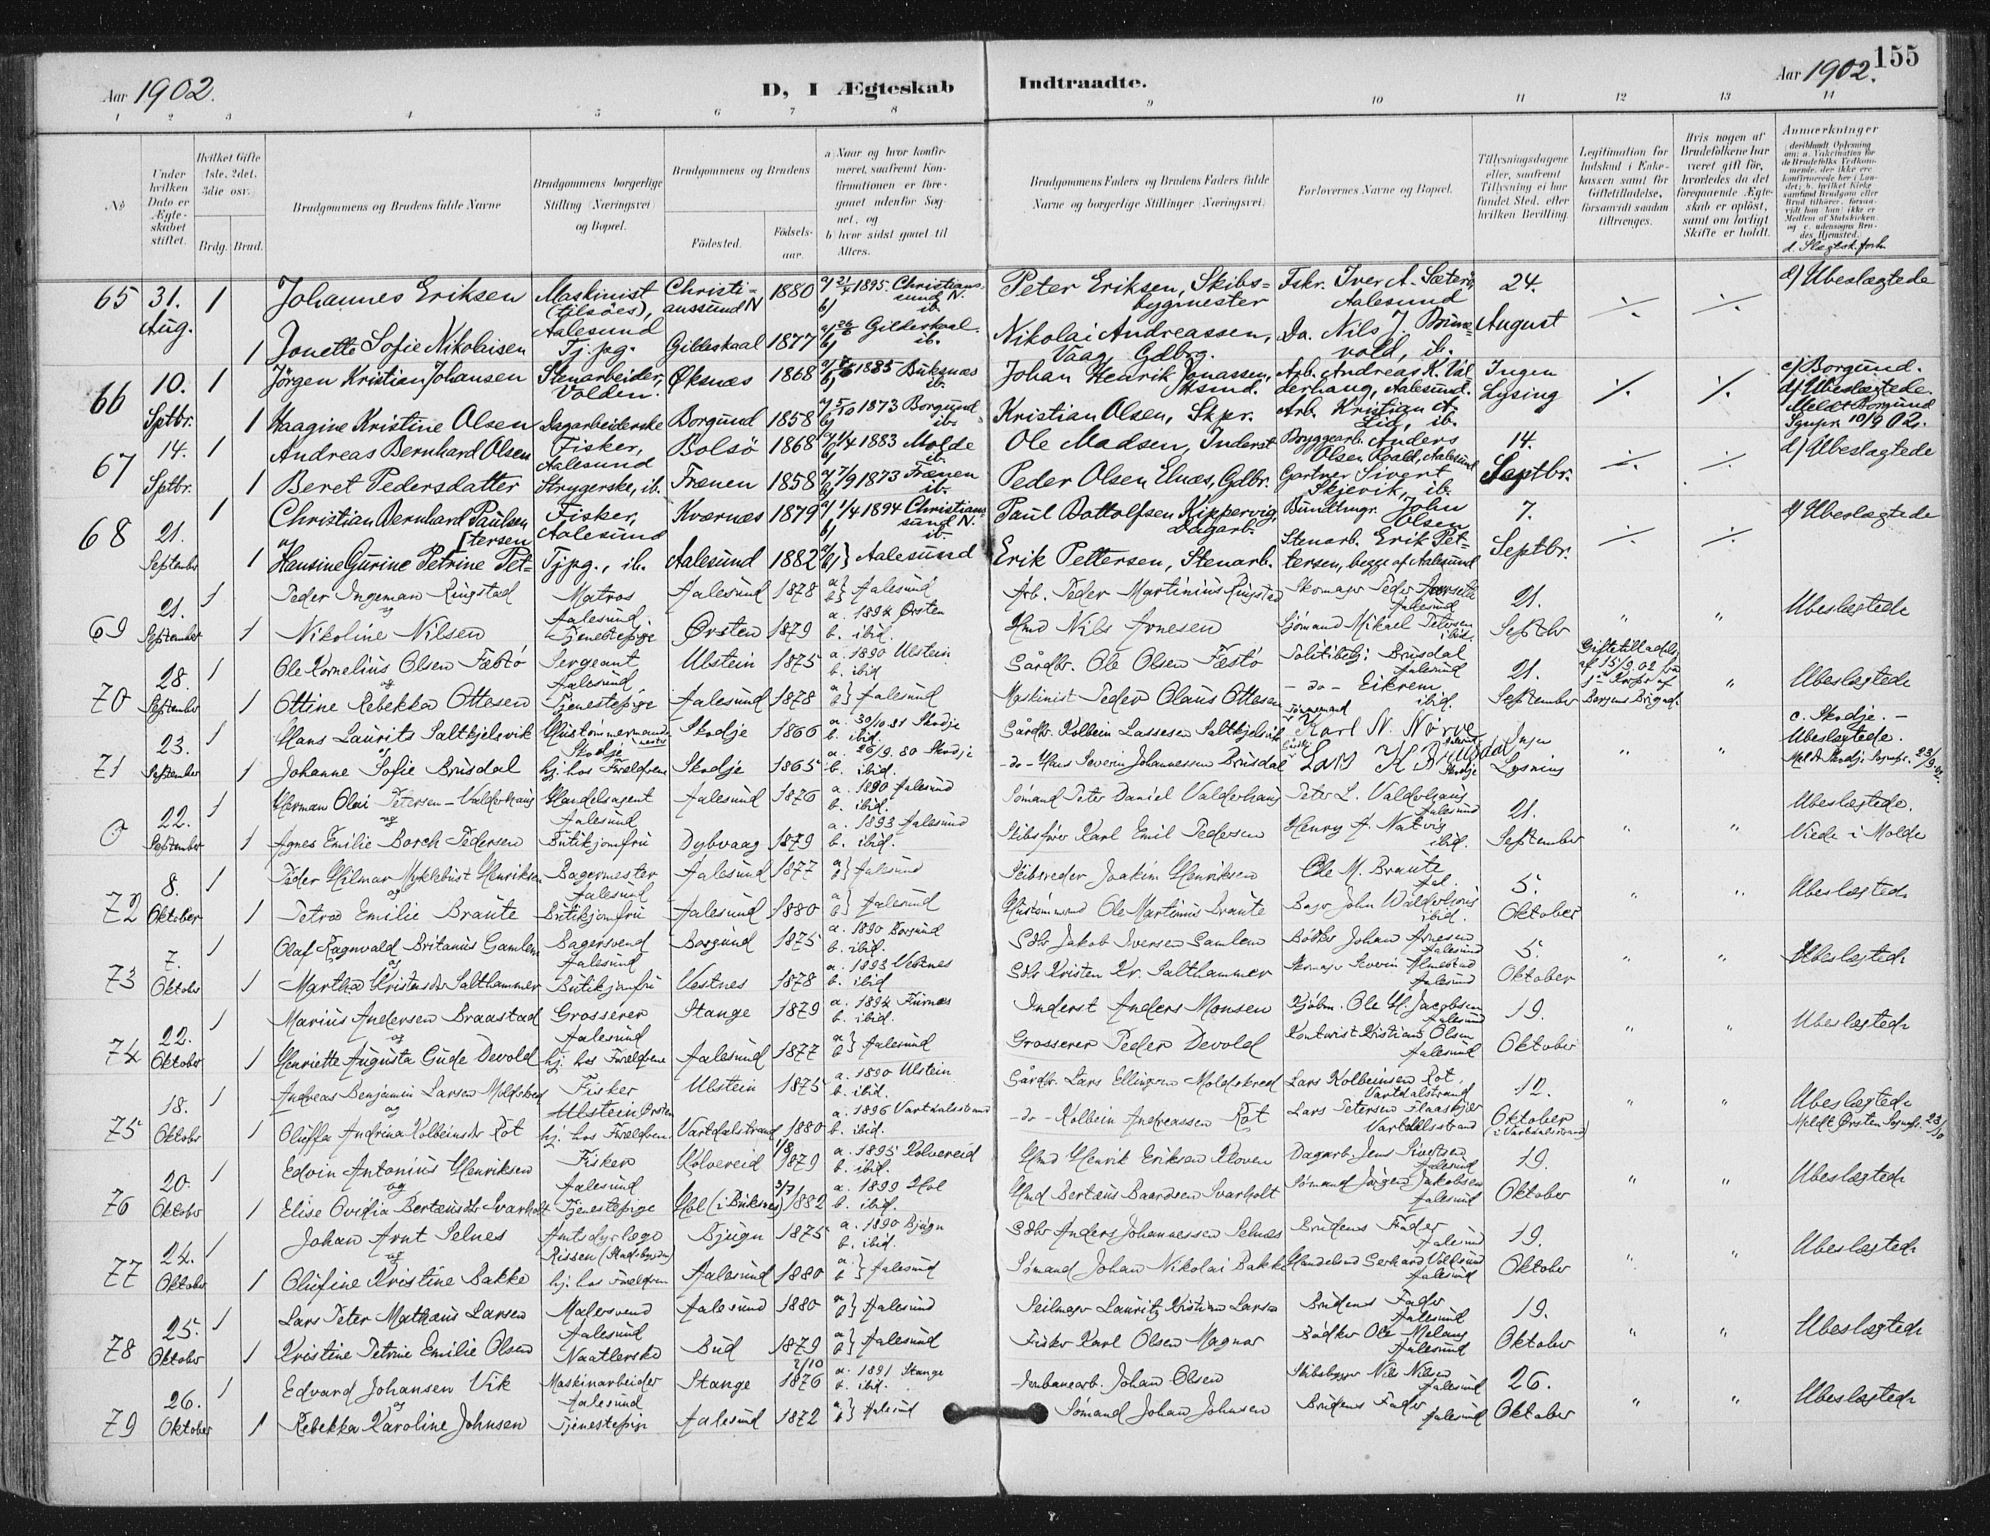 155
Aar 1902.
D, I Ægteskab Indtraadte.
Aar 1902.
1 2 3 4 5 6 7 8 9 10 11 12 13 14
№
Under hvilken Dato er Ægteskabet stiftet.
Hvilket Gifte 1ste, 2det, 3die osv.
Brdg. Brud.
Brudgommens og Brudens fulde Navne
Brudgommens borgerlige Stilling (Næringsvei) og Bopæl.
Brudgommens og Brudens
Födested.
Födselsaar.
a) Naar og hvor konfirmeret, saafremt Konfirmationen er foregaaet udenfor Sognet, og
b) hvor sidst gaaet til Alters.
Brudgommens Faders og Brudens Faders fulde Navne og borgerlige Stillinger (Næringsvei)
Forlovernes Navne og Bopæl.
Tillysningsdagene eller, saafremt Tillysning ei har fundet Sted, efter hvilken Bevilling.
Legitimation for Indskud i Enkekassen samt for Giftetilladelse, forsaavidt saadan tiltrænges.
Hvis nogen af Brudefolkene har været gift för, hvorledes da det foregaaende Ægteskab er oplöst, samt om lovligt Skifte er holdt.
Anmerkninger
65 31. Aug. 1 Johannes Eriksen Maskinist (tilsöes), Aalesund Christianssund N 1880 1895 Christianssund N. ib. Peter Eriksen, Skibsbygmester Fskr. Iver A. Sæter, Aalesund 24. August d) Ubeslægtede
1 Jonette Sofie Nikolaisen Tj.pg. Gildeskaal 1877 Gildeskaal. ib. Nikolai Andreassen, Vaag, Gdbrg. Da. Nils J. Brunvold, ib.
66 10. Sptbr. 1 Jörgen Kristian Johansen Stenarbeider, Volden. Øksnæs 1868 1885 Buksnæs ib. Johan Henrik Jonassen, Hsmd. Arb. Andreas K. Valderhaug, Aalesund. Ingen Lysing c) Borgund. d) Ubeslægtede
1 Haagine Kristine Olsen Dagarbeiderske Borgund 1858 5/10 1873 Borgund ib. Kristian Olsen, Skpr. Arb. Kristian A. Lid, ib. Meldt Borgund Sgnpr. 10/9 02.
67 14. Sptbr. 1 Andreas Bernhard Olsen Fisker, Aalesund Bolsö 1868 1883 Molde ib. Ole Madsen, Inderst Bryggearb. Anders Olsen Hvald, Aalesund 14. Septbr. d) Ubeslægtede
1 Beret Pedersdatter Strygerske, ib. Frænen 1858 7/9 1873 Frænen ib. Peder Olsen Elnæs, Gdbr. Gartner Sivert Skjevik, ib.
68 21. September 1 Christian Bernhard Paulsen Fisker, Aalesund Kværnæs 1879 1/4 1894 Christianssund N. ib. Paul Bottolfsen Kippervig, Dagarb. Bundtmgr. John Olsen 7. Septbr. d) Ubeslægtede
1 Hansine Gurine Petrine Pettersen Tjpg., ib. Aalesund 1882 Aalesund Erik Pettersen, Stenarb. Stenarb. Erik Pettersen, begge af Aalesund
69 21. September 1 Peder Ingeman Ringstad Matros Aalesund. Aalesund 1878 Aalesund Arb. Peder Martinius Ringstad Skomager Peder Aarseth Aalesund 21. Septbr Ubeslægtede
og
1 Nikoline Nilsen Tjenestepige Ørsten 1879 a. 1894 Ørsten b. ibid. Hmd Nils Arnesen Sjömand Mikael Petersen ibid.
70 28. September 1 Ole Kornelius Olsen Fæstö Sergeant, Aalesund Ulstein 1875 a. 1890 Ulstein b. ibid Gårdbr. Ole Olsen Fæstö Politibetj. Brusdal Aalesund 21. September Giftetilladelse af 15/9.02 fra Bergens Brigade. Ubeslægtede
og
1 Ottine Rebekka Ottesen Tjenestepige Aalesund 1878 Aalesund Maskinist Peder Olaus Ottesen - do - Eikrem ibid.
71 23. September 1 Hans Laurits Saltkjelsvik Skodje Skodje 1866 a. 30/10.81 Skodje b. ibid. Gårdbr. Kolbein Lassesen Saltkjelsvik Karl N. Nörve Ingen Lysning c. Skodje. - Ubeslægtede.
1 Johanne Sofie Brusdal hj. hos Forældrene Skodje 1865 a. 26/9.80 Skodje b. ibid. - do - Hans Severin Johannessen Brusdal Lars K Brusdal Skodje Meldt Skodje Sognepr. 23/9.02.
0 22. September 1 Herman Olai Petersen-Valderhaug Handelsagent Aalesund Aalesund 1876 a. 1890 Aalesund b. ibid. Sömand Peter Daniel Valderhaug Peter L. Valderhaug Aalesund 21. September Ubeslægtede.
og
1 Agnes Emilie Borch Pedersen Butikjomfru Dybvaag 1879 a. 1893 Aalesund b. ibid. Skibsförer Karl Emil Pedersen Henry A. Natvig ibid. Viede i Molde
72 8. Oktober 1 Peder Hilmar Myklebust Henriksen Bagermester Aalesund Aalesund 1877 Aalesund Skibsreder Joakim Henriksen Ole M. Braute Aal. 5. Oktober Ubeslægtede
og
1 Petra Emilie Braute Butikjomfru Aalesund 1880 Aalesund Hustömmermand Ole Martinus Braute Bager John Walderhaug ibid.
73 7. Oktober 1 Olaf Ragnvald Britanus Gamlem Bagersvend Aalesund Borgund 1875 a. 1890 Borgund b. ibid. Gdbr Jakob Iversen Gamlem Bödker Johan Arnesen Aalesund 5. Oktober Ubeslægtede
og
1 Martha Kristensdtr Salthammer Butikjomfru Vestnes 1878 a. 1893 Vestnes b. ibid Gdbr Kristen Kr. Salthammer Skomager Severin Almestad Aalesund
74 22. Oktober 1 Marius Andersen Braastad Grosserer Aalesund Stange 1879 a. 1894 Furnæs b. ibid. Inderst Anders Monsen Kjöbm. Ole H. Jacobsen Aalesund 19. Oktober Ubeslægtede
og
1 Henriette Augusta Gude Devold hj. hos Forældrene Aalesund 1877 Aalesund Grosserer Peder Devold Kontorist Kristian Olsen Aalesund
75 18. Oktober 1 Andreas Benjamin Larsen Moldskred Fisker Ulstein Ulstein 1875 a. 1890 Ulstein b. ibid. Gårdbr. Lars Ellingsen Moldskred Lars Kolbeinsen Rot, Vartdalstrand 12. Oktober (i Vartdalsstrand) Ubeslægtede
og
1 Oluffa Andrina Kolbeinsdtr Rot hj. hos Forældrene Vartdalstrand 1880 a. 1896 Vartdalsstrand b. ibid. - do - Kolbein Andreassen Rot Lars Petersen Flaaskjer Vartdalsstrand Meldt Ørsten Sognepr. 23/10
76 20. Oktober 1 Edvin Antonius Henriksen Fisker Aalesund Kolvereid 1879 a. 1895 Kolvereid b. ibid. Hmd Henrik Eriksen Kloven Dagarb. Jens Sivertsen Aalesund 19. Oktober Ubeslægtede
og
1 Elise Ovidia Bertæusdtr Svarholt Tjenestepige Hol (i Buksnes) 3/7 1882 a. 1899 Hol b. ibid. Hmd Bertæus Baardsen Svarholt Sömand Jörgen Jakobsen Aalesund
77 24. Oktober 1 Johan Arnt Selnes Amtsdyrlæge Rissen (Stadsbygden) Bjugn 1875 a. 1890 Bjugn b. ibid. Gdbr Anders Johannessen Selnæs Brudens Fader Aalesund 19. Oktober Ubeslægtede
og
1 Olufine Kristine Bakke hj. hos Forældrene Aalesund 1880 Aalesund Sömand Johan Nikolai Bakke Handelsmd Gerhard Voldsund Aalesund
78 25. Oktober 1 Lars Peter Mathæus Larsen Malersvend Aalesund Aalesund 1880 Aalesund Seilmager Lauritz Kristian Larsen Brudens Fader Aalesund 19. Oktober Ubeslægtede
1 Kristine Petrine Emilie Olsen Naatlerske Bud 1879 Aalesund Fisker Karl Olsen Magnar Bödker Ole Melaas Aalesund
79 26. Oktober 1 Edvard Johansen Vik Maskinarbeider Aalesund Stange 2/10 1876 a. 1891 Stange b. ibid. Jernbanearb. Johan Olsen Skibsbygger Nils Nilsen Aalesund 26. Oktober Ubeslægtede
og
1 Rebekka Karoline Johnsen Tjenestepige Aalesund 1872 Aalesund Sömand Johan Johnsen Brudens Fader Aalesund